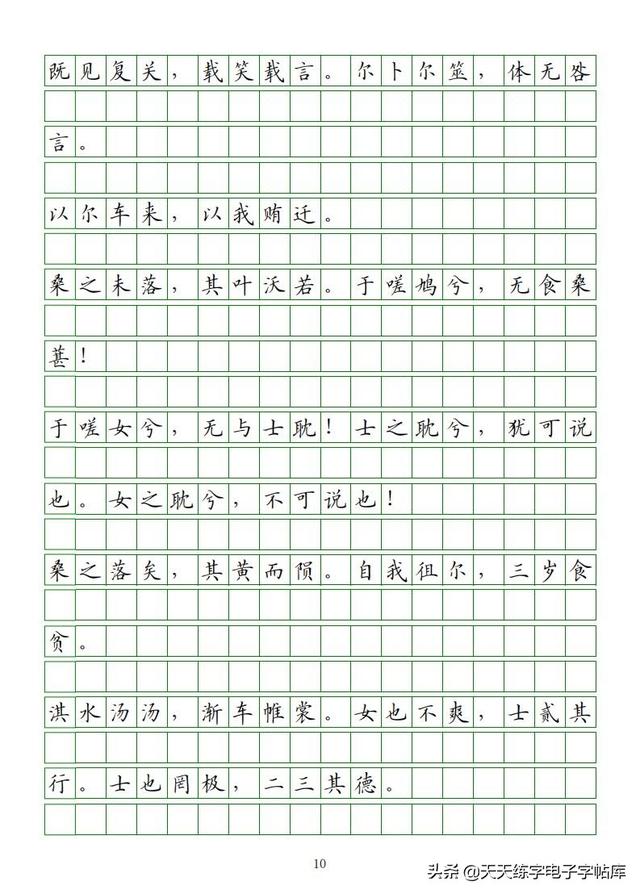 既见复关，载笑载言。尔卜尔筮，体无咎
言。
以尔车来，以我贿迁。
桑之未落，其叶沃若。于嗟鸠兮，无食桑
葚！
于嗟女兮，无与士耽！士之耽兮，犹可说
也。女之耽兮，不可说也！
桑之落矣，其黄而陨。自我徂尔，三岁食
贫。
淇水汤汤，渐车帷裳。女也不爽，士贰其
行。士也罔极，二三其德。
10
头条 @天天练字电子字帖库